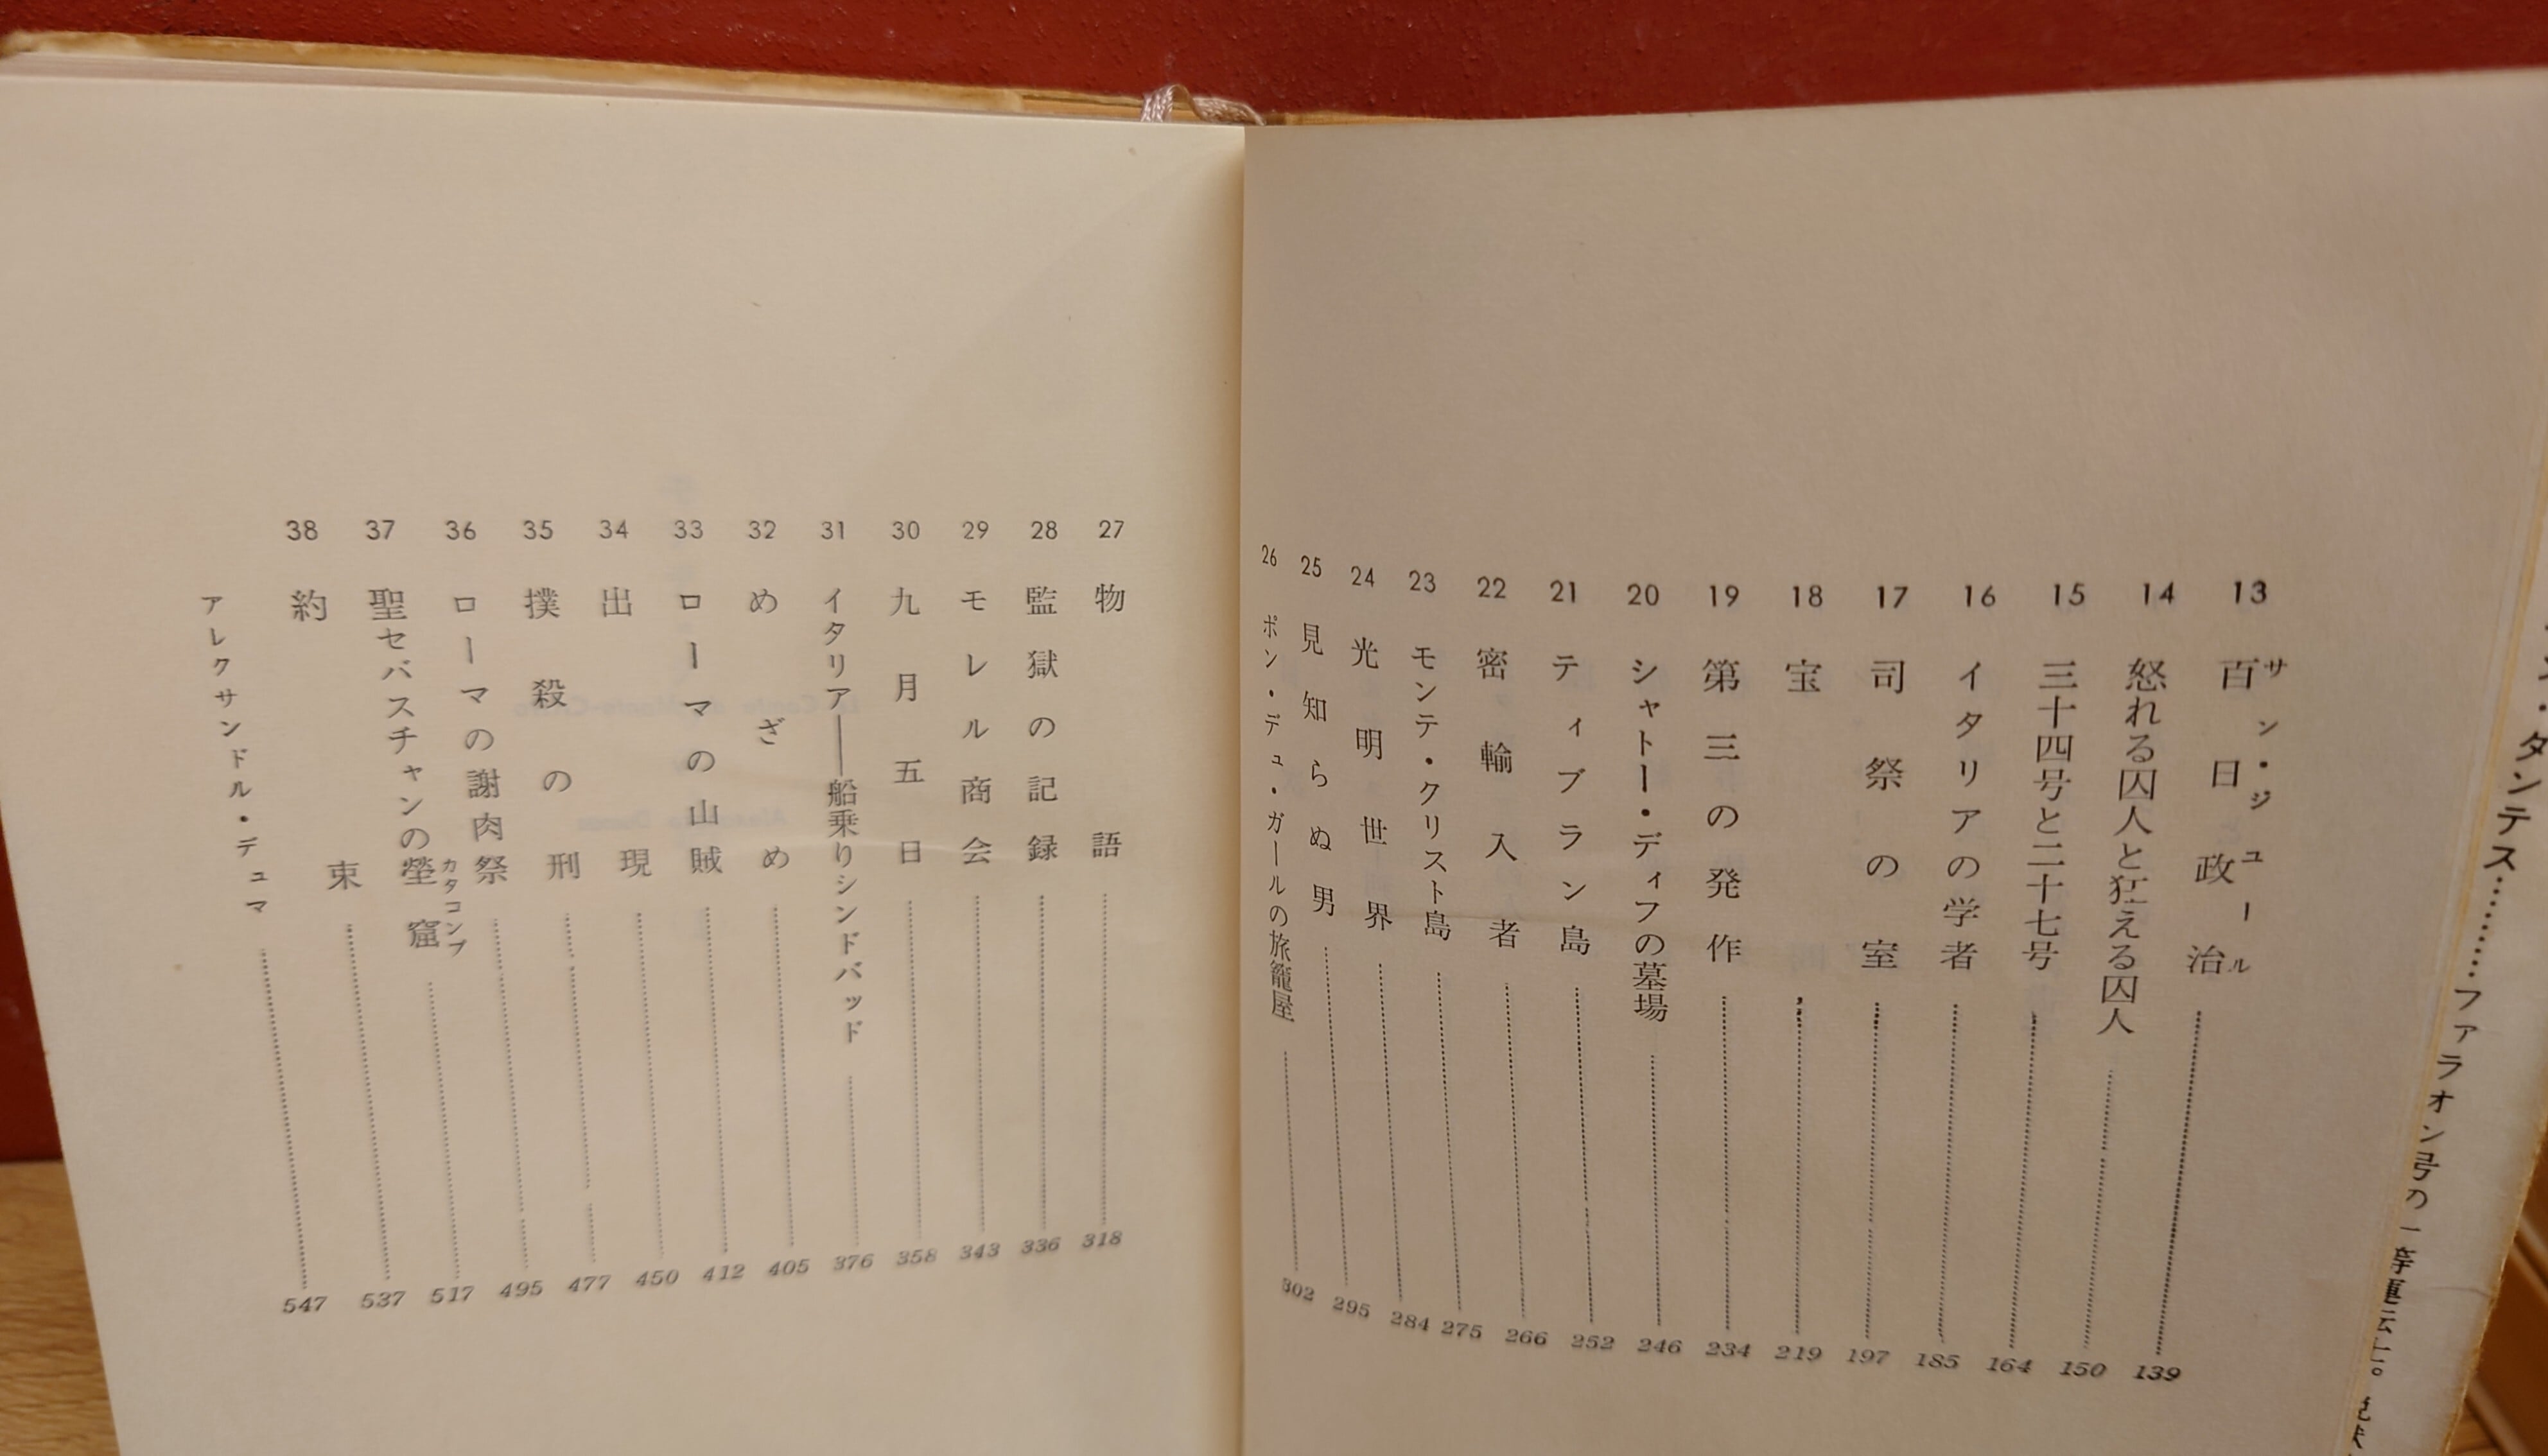 13 百日政治 139
サン・ジュール
14 怒れる囚人と狂える囚人 150
15 三十四号と二十七号 164
16 イタリアの学者 185
17 司祭の室 197
18 宝 219
19 第三の発作 234
20 シャトー・ディフの墓場 246
21 ティブラン島 252
22 密輸入者 266
23 モンテ・クリスト島 275
24 光明世界 284
25 見知らぬ男 295
26 ポン・デュ・ガールの旅籠屋 302
27 物語 318
28 監獄の記録 336
29 モレル商会 343
30 九月五日 358
31 イタリア――船乗りシンドバッド 376
32 めざめ 405
33 ローマの山賊 412
34 出現 450
35 撲殺の刑 477
36 ローマの謝肉祭 495
37 聖セバスチャンの塋窟 517
カタコンブ
38 約束 537
アレクサンドル・デュマ 547
・タンテス………ファラオン号の一等運転士。